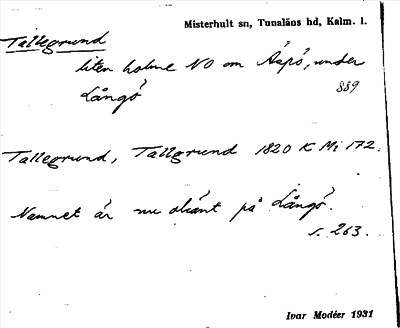 Misterhult sn, Tunaläns hd, Kalm. l.
Tallegrund
liten holme NO om Äspö, under
Långö 889
Tallegrund, Tallgrund 1820 K Mi 172.
Namnet är nu okänt på Långö.
s. 263.
Ivar Modéer 1931